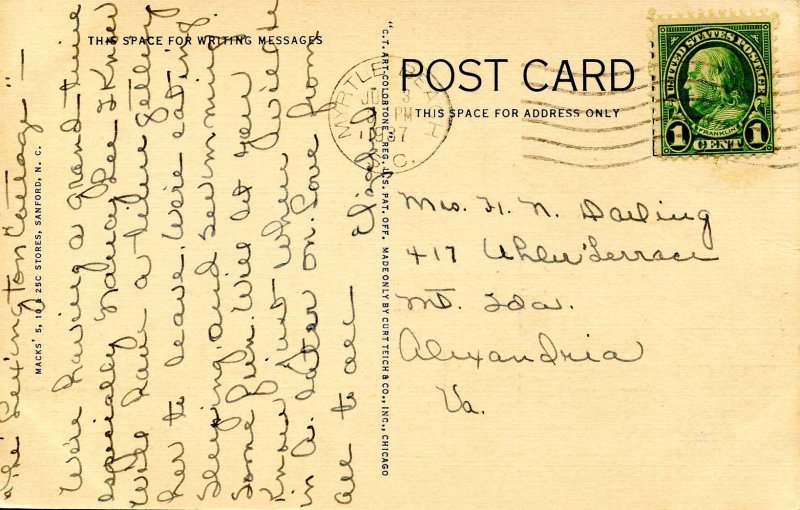 THIS SPACE FOR WRITING MESSAGES
"The Lexington Cottage" –
We're having a grand time
especially Nancy Lee. I know
we'll have a time getting
her to leave. We're eating
sleeping and swimming.
Some fun. Will let you
know just where we'll be
in a. later on. Love from
all to all
MACKS' 5, 10 & 25C STORES, SANFORD, N. C.
"C. T. ART-COLORTONE" REG. U.S. PAT. OFF. MADE ONLY BY CURT TEICH & CO., INC., CHICAGO
POST CARD
THIS SPACE FOR ADDRESS ONLY
MYRTLE BEACH
PM
1937
S. C.
UNITED STATES POSTAGE
FRANKLIN
1 CENT 1
Mrs. H. N. Darling
417 Uhler Terrace
Mt. Ida.
Alexandria
Va.